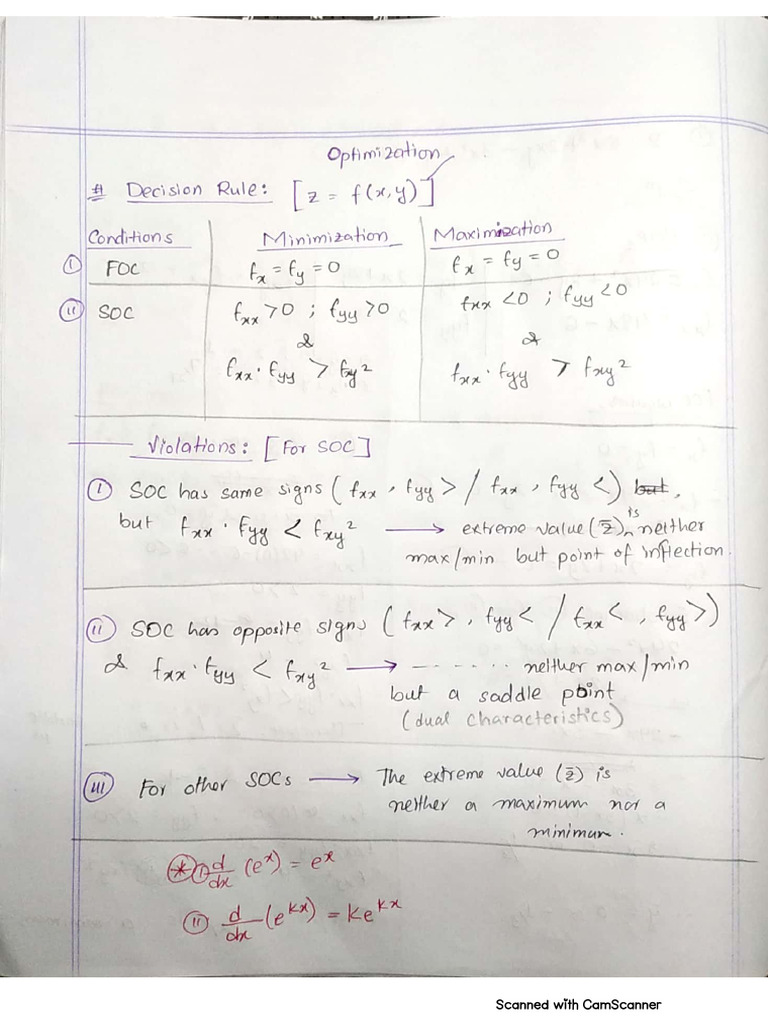 Optimization
# Decision Rule: [z = f(x,y)]
Conditions Minimization Maximization
(i) FOC fx = fy = 0 fx = fy = 0
(ii) SOC fxx > 0 ; fyy > 0 fxx < 0 ; fyy < 0
& &
fxx · fyy > fxy² fxx · fyy > fxy²
Violations: [For SOC]
(i) SOC has same signs (fxx, fyy > / fxx, fyy <) but,
but fxx · fyy < fxy² → extreme value (z̄) is neither
max/min but point of inflection.
(ii) SOC has opposite signs (fxx >, fyy < / fxx <, fyy >)
& fxx · fyy < fxy² → ....... neither max/min
but a saddle point
(dual characteristics)
(iii) For other SOCs → The extreme value (z̄) is
neither a maximum nor a
minimum.
* (i) d/dx (e^x) = e^x
(ii) d/dx (e^kx) = ke^kx
Scanned with CamScanner